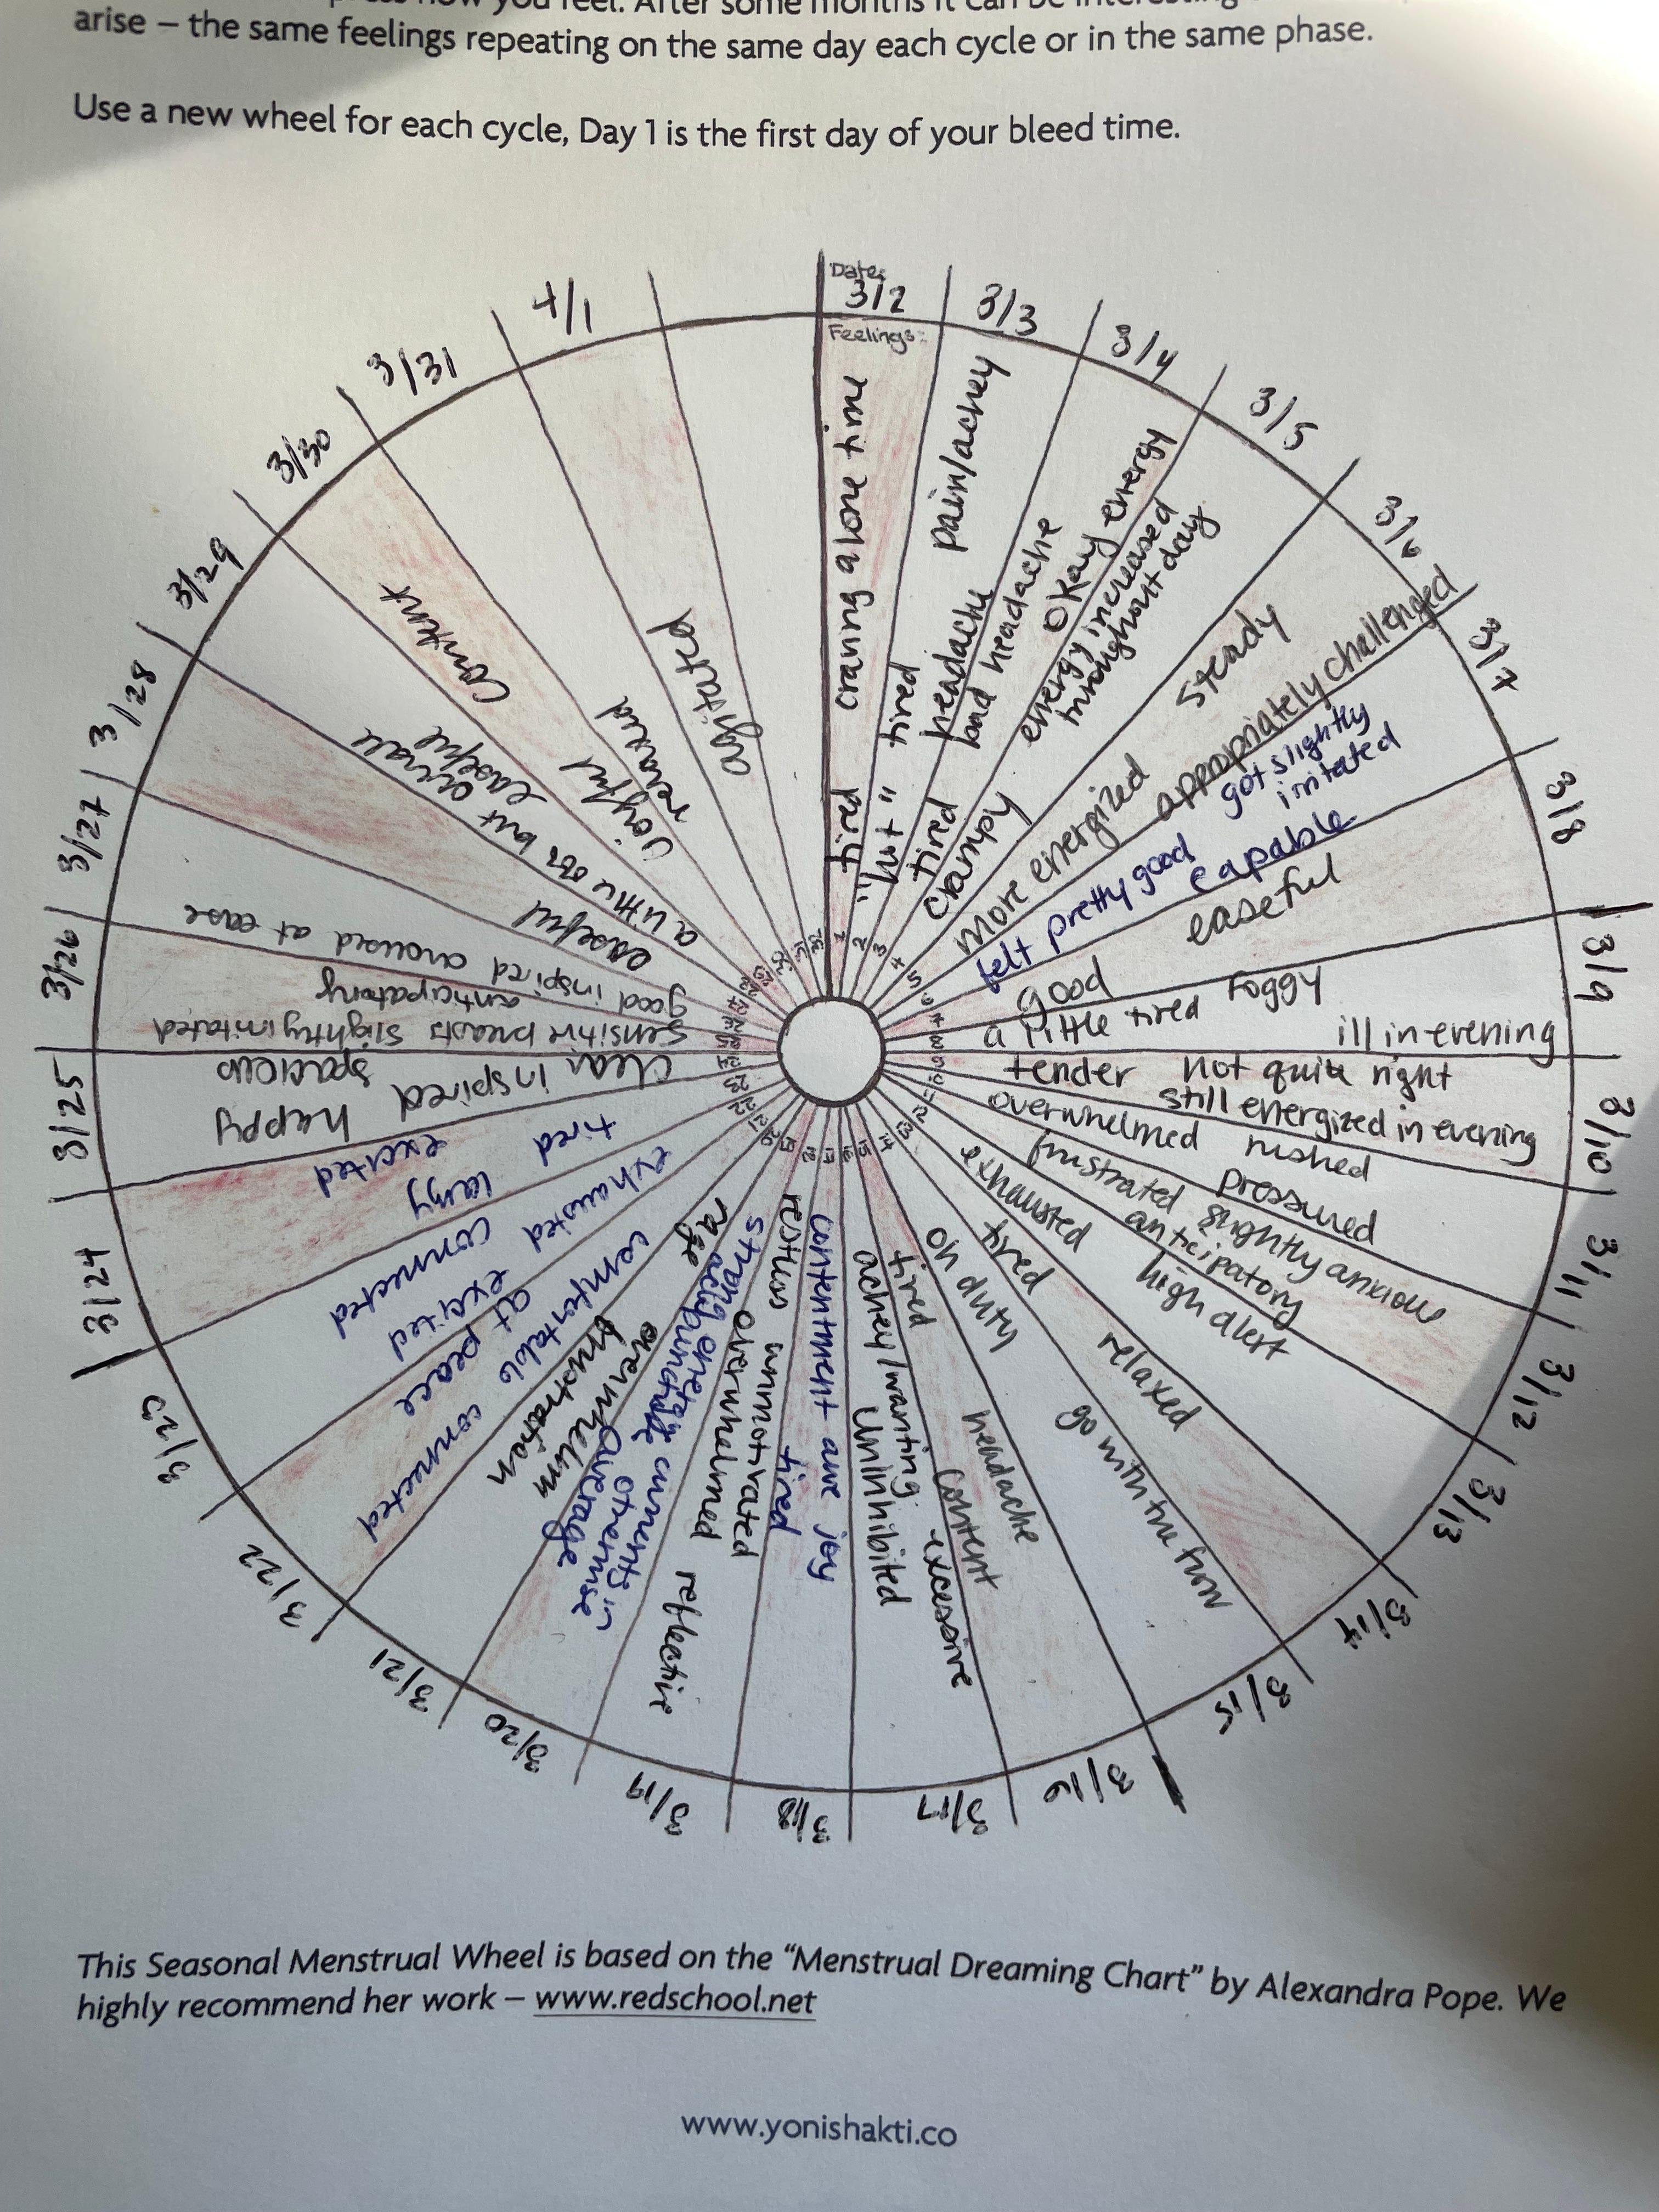 arise – the same feelings repeating on the same day each cycle or in the same phase.
Use a new wheel for each cycle, Day 1 is the first day of your bleed time.
Date:
3/2
Feelings:
tired craving alone time
3/3
"hot" tired
headache pain/achey
3/4
tired bad headache
okay energy
3/5
crampy energy increased
throughout day
3/6
more energized steady
3/7
appropriately challenged
felt pretty good got slightly
irritated
capable
3/8
easeful
good
3/9
a little tired foggy
ill in evening
3/10
tender not quite right
still energized in evening
3/11
overwhelmed rushed
pressured
3/12
frustrated slightly anxious
anticipatory
3/13
exhausted high alert
3/14
tired relaxed
3/15
on duty go with the flow
3/16
tired headache
content
3/17
achey/wanting excessive
uninhibited
3/18
contentment awe joy
tired
3/19
restless unmotivated
overwhelmed reflective
3/20
strong energy currents in
otherwise
average
3/21
rage
overwhelm
frustration
3/22
comfortable connected
at peace
3/23
exhausted excited
connected
3/24
tired lazy
excited
3/25
clear inspired happy
spacious
3/26
sensitive breasts slightly irritated
anticipatory
3/27
good inspired aroused at ease
3/28
easeful
3/29
a little but overall
easeful
3/30
joyful content
3/31
relaxed
4/1
agitated
1
2
3
4
5
6
7
8
9
10
11
12
13
14
15
16
17
18
19
20
21
22
23
This Seasonal Menstrual Wheel is based on the “Menstrual Dreaming Chart” by Alexandra Pope. We
highly recommend her work – www.redschool.net
www.yonishakti.co